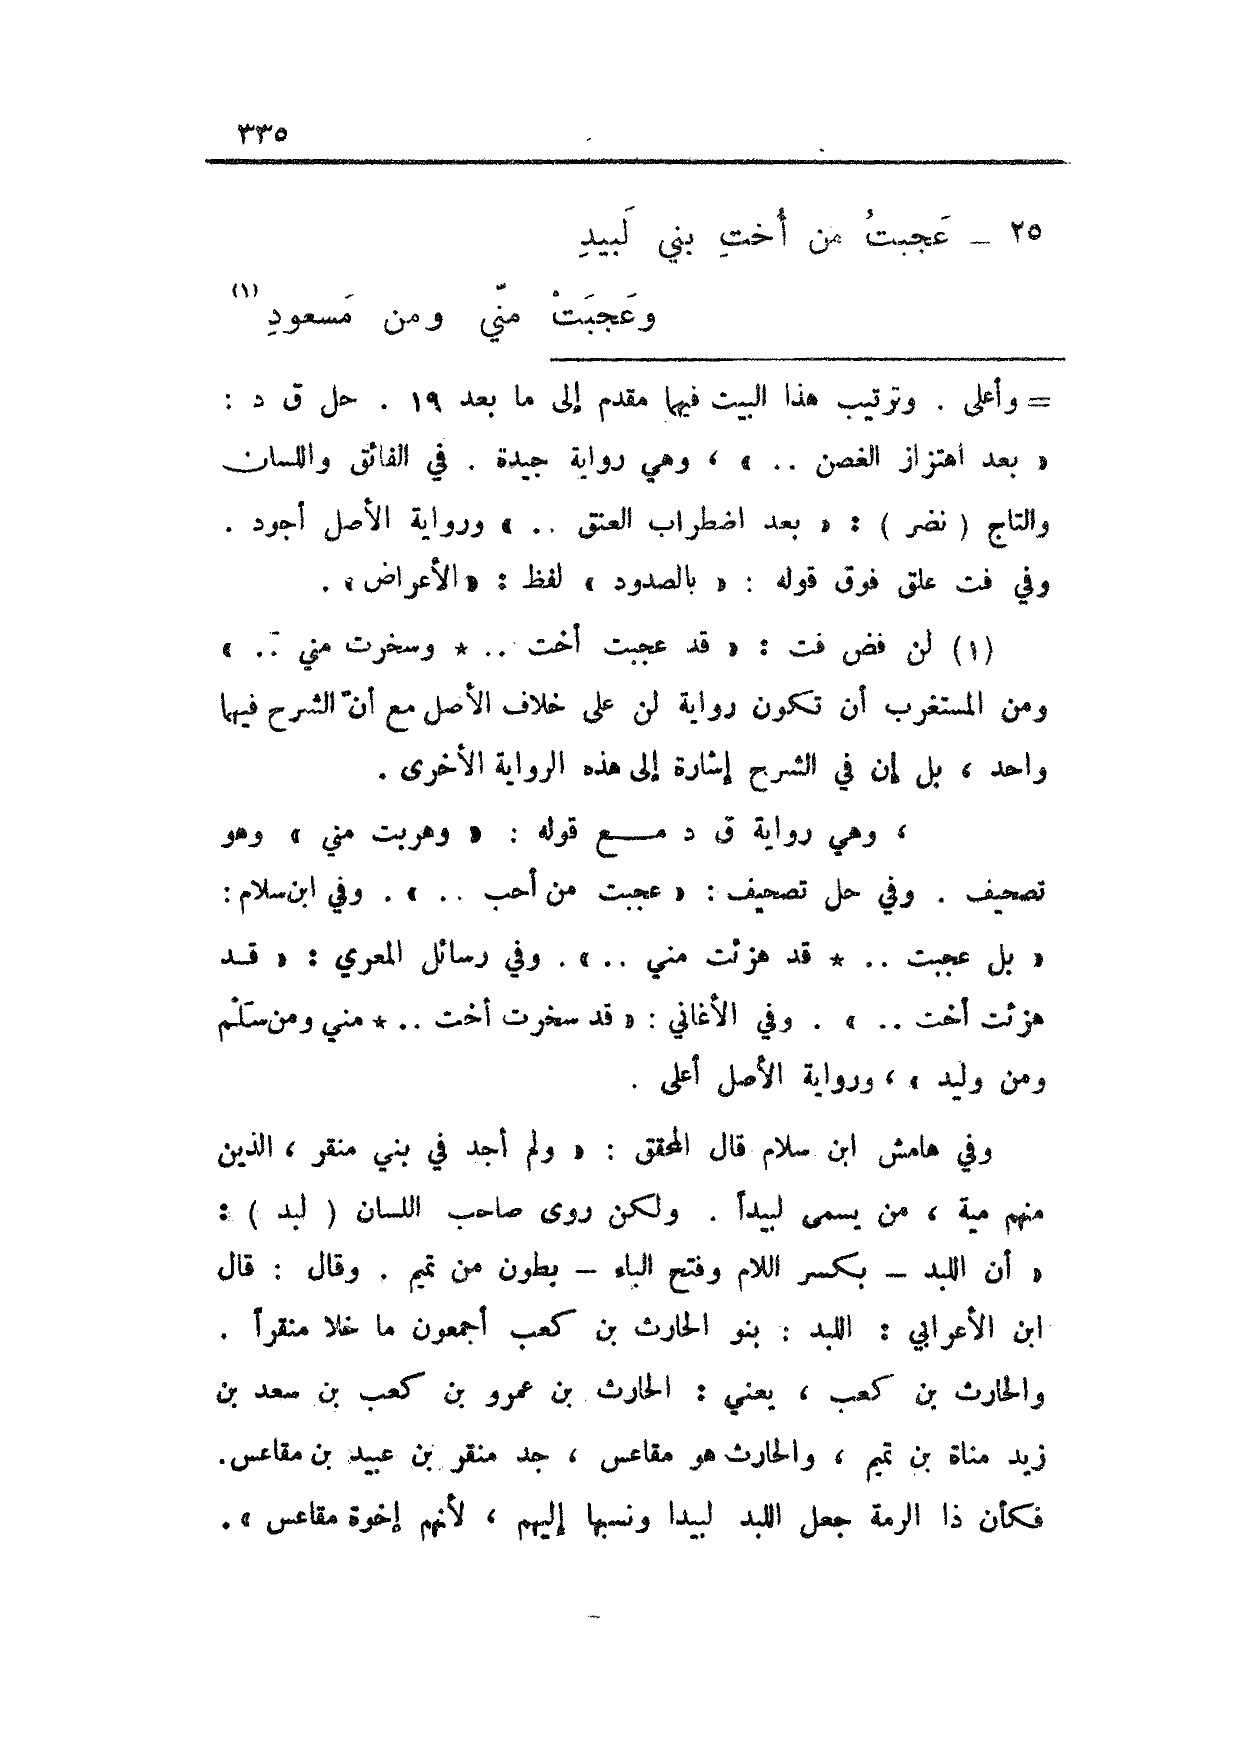 ٣٣٥
٢٥ ــ عَجبتُ من أُختِ بني لَبيدِ
وعَجبَتْ منّي ومن مَسعودِ (١)
= وأعلى . وترتيب هذا البيت فيها مقدم إلى ما بعد ١٩ . حل ق د :
« بعد اهتزاز الغصن .. » ، وهي رواية جيدة . في الفائق واللسان
والتاج ( نضر ) : « بعد اضطراب العنق .. » ورواية الأصل أجود .
وفي فت علق فوق قوله : « بالصدود » لفظ : « الأعراض » .
(١) لن فض فت : « قد عجبت أخت .. * وسخرت مني .. »
ومن المستغرب أن تكون رواية لن على خلاف الأصل مع أنّ الشرح فيها
واحد ، بل إن في الشرح إشارة إلى هذه الرواية الأخرى .
، وهي رواية ق د مــع قوله : « وهربت مني » وهو
تصحيف . وفي حل تصحيف : « عجبت من أحب .. » . وفي ابن سلام :
« بل عجبت .. * قد هزئت مني .. » . وفي رسائل المعري : « قــد
هزئت أخت .. » . وفي الأغاني : « قد سخرت أخت .. * مني ومن سَلْم
ومن وليد » ، ورواية الأصل أعلى .
وفي هامش ابن سلام قال المحقق : « ولم أجد في بني منقر ، الذين
منهم مية ، من يسمى لبيداً . ولكن روى صاحب اللسان ( لبد ) :
« أن اللبد – بكسر اللام وفتح الباء – بطون من تميم . وقال : قال
ابن الأعرابي : اللبد : بنو الحارث بن كعب أجمعون ما خلا منقراً .
والحارث بن كعب ، يعني : الحارث بن عمرو بن كعب بن سعد بن
زيد مناة بن تميم ، والحارث هو مقاعس ، جد منقر بن عبيد بن مقاعس.
فكأن ذا الرمة جعل اللبد لبيدا ونسبها إليهم ، لأنهم إخوة مقاعس » .